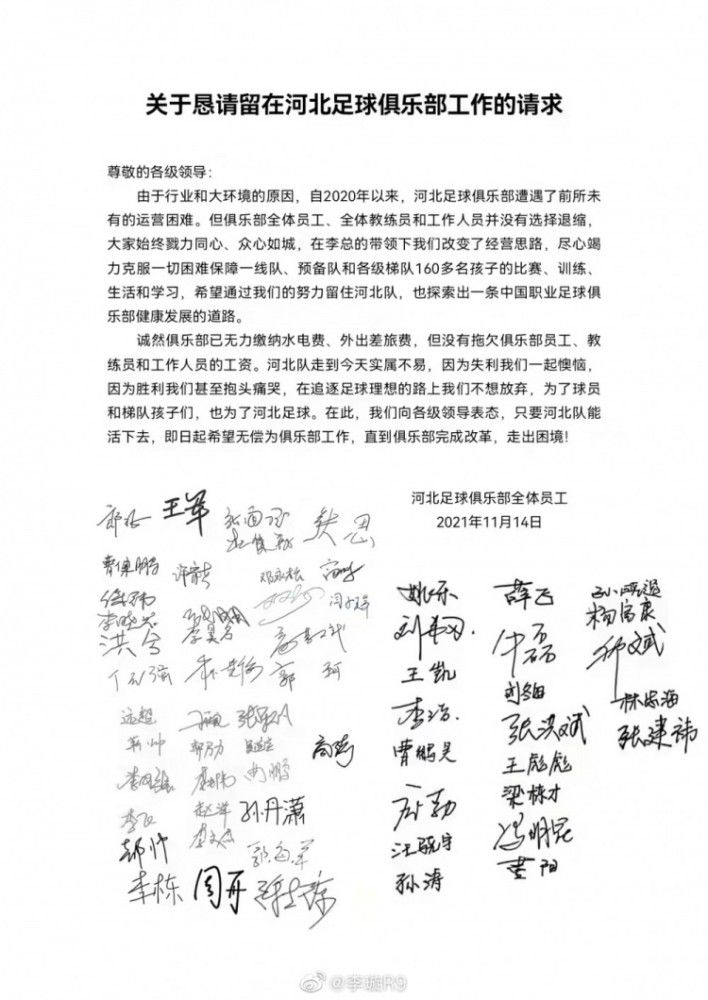 关于恳请留在河北足球俱乐部工作的请求
尊敬的各级领导：
由于行业和大环境的原因，自2020年以来，河北足球俱乐部遭遇了前所未
有的运营困难。但俱乐部全体员工、全体教练员和工作人员并没有选择退缩，
大家始终戮力同心、众心如城，在李总的带领下我们改变了经营思路，尽心竭
力克服一切困难保障一线队、预备队和各级梯队160多名孩子的比赛、训练、
生活和学习，希望通过我们的努力留住河北队，也探索出一条中国职业足球俱
乐部健康发展的道路。
诚然俱乐部已无力缴纳水电费、外出差旅费，但没有拖欠俱乐部员工、教
练员和工作人员的工资。河北队走到今天实属不易，因为失利我们一起懊恼，
因为胜利我们甚至抱头痛哭，在追逐足球理想的路上我们不想放弃，为了球员
和梯队孩子们，也为了河北足球。在此，我们向各级领导表态，只要河北队能
活下去，即日起希望无偿为俱乐部工作，直到俱乐部完成改革，走出困境！
河北足球俱乐部全体员工
2021年11月14日
王军
洪兮
郭珂
远超
孙丹潇
李栋 周丹
姚乐
王凯
李浩
曹鹏昊
汪晓宇
孙涛
薛飞
牛磊
张洪斌
王彪彪
梁栋才
冯明昆
杨富康
林忠海
张建祎
@李璇R9